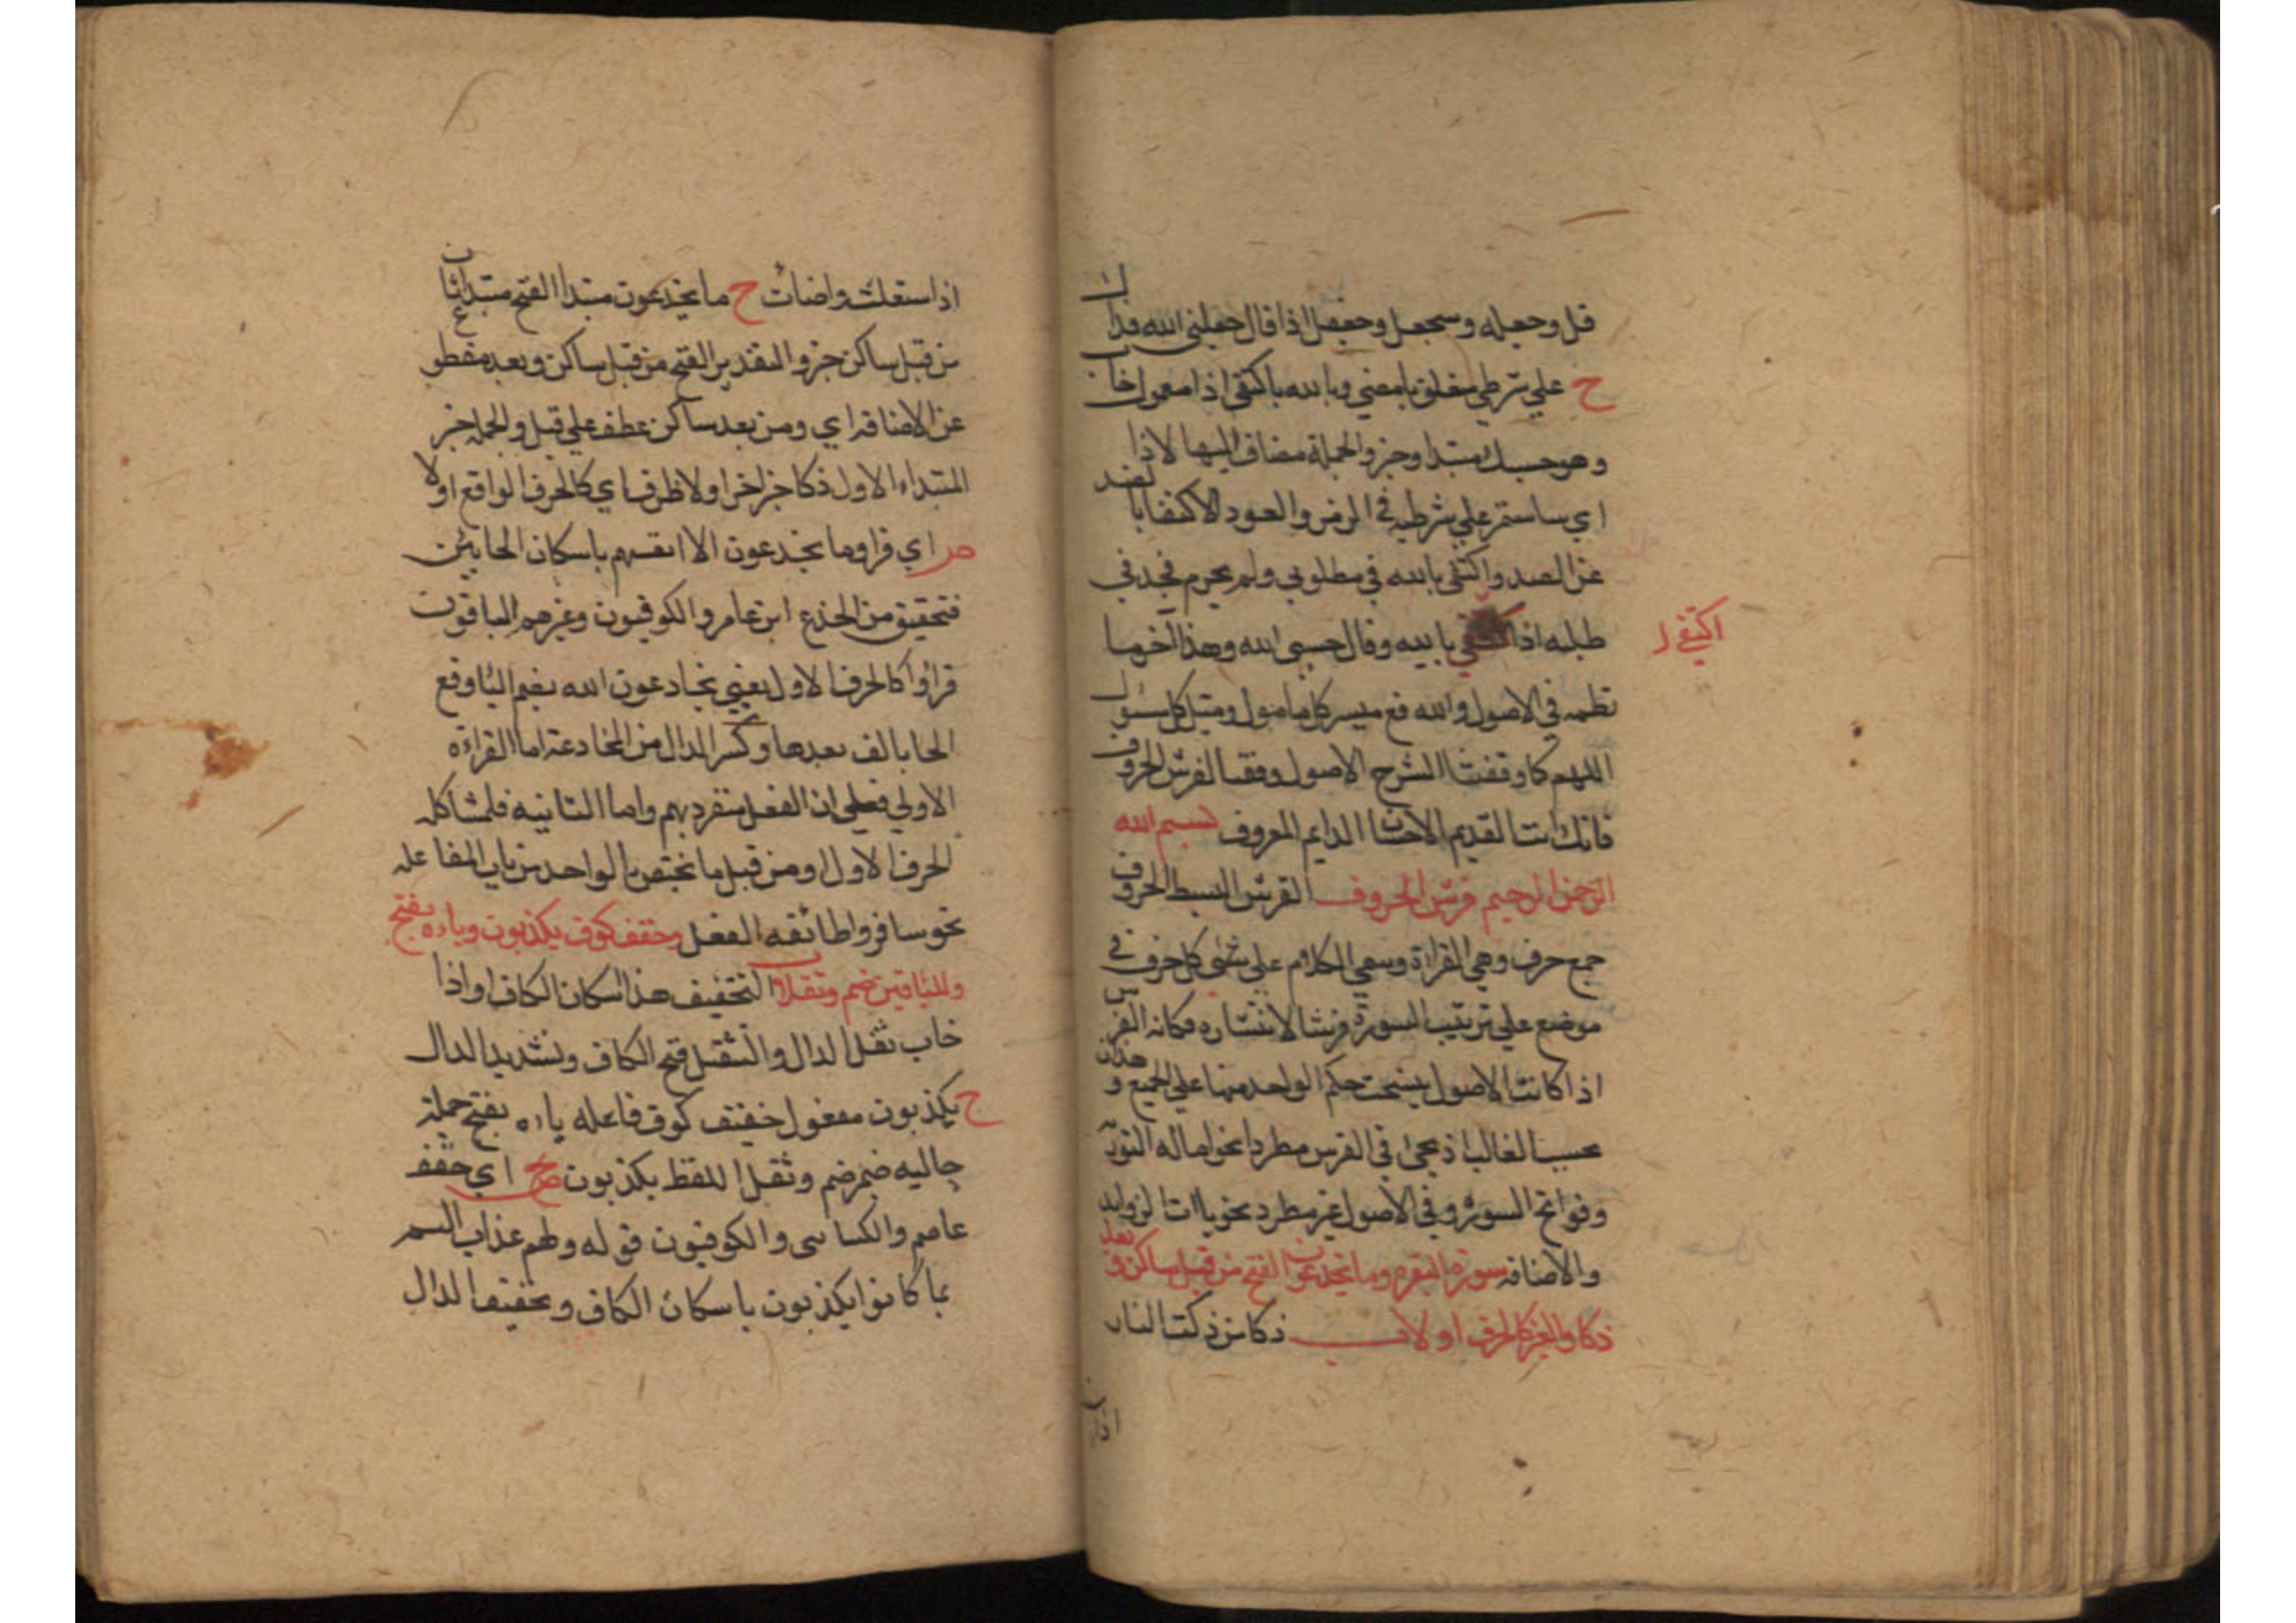 قل وحعله وسحعل وحعفل اذا قال حعلني الله فداك
ح علي شرطي متعلق بامضي وبالله باكتفي اذا معمول خاب
وهو حسبك مبتدا وخبر والجملة مضاف اليها لاذا
اي ساستمر علي شرطي في الرمز والعود الاكتفا بالضد
عن الضد واكتفي بالله في مطلوبي ولم يحرم مجد في
طلبه اذا اكتفي بالله وقال حسبي الله وهذا اخر ما
اكتفي
نظمه في الاصول والله مع ميسر كل مامول ومنيل كل سئول
اللهم كما وفقتنا لشرح الاصول وفقنا لفرش الحروف
فانك انت القديم الاحسان الدايم المعروف بسم الله
الرحمن الرحيم فرش الحروف الفرش البسط الحروف
جمع حرف وهي القراءة وسمي الكلام علي كل حرف في
موضع علي ترتيب السورة فرشا لانتشاره فكانه انفرش
اذا كانت الاصول ينسحب حكم الواحد منها علي الجميع وهذان
بحسب الغالب اذ يجئ في الفرش مطرد نحو امالة التورية
وفواتح السور وفي الاصول غير مطرد نحو ياات الزوايد
والاضافه سورة البقرة وما يخدعون الفتح من قبل ساكن وبعد
ذكا والغير كالحرف اولا ب ذكا من ذكت النار
اذا
اذا استعلت واضات ح ما يخدعون مبتدا الفتح مبتدا ثان
من قبل ساكن خبر والتقدير الفتح من قبل ساكن وبعد مقطوع
عن الاضافه اي ومن بعد ساكن عطف علي قبل والجمله خبر
المبتداء الاول ذكا خبر اخر اولا ظرف اي كالحرف الواقع اولا
ص اي قرا وما يخدعون الا انفسهم باسكان الحا بين
فتحتين من الخدع ابن عامر والكوفيون وغيرهم الباقون
قراوا كالحرف الاول يعني يخادعون الله بضم اليا وفتح
الخا بالف بعدها وكسر الدال من المخادعة اما القراءة
الاولي فعلي ان الفعل منفرد بهم واما الثانيه فلمشاكله
الحرف الاول او من قبل ما يختص بالواحد من باب المفاعله
نحو سافر واطائقه الفعل وخفف كوف يكذبون وياءه بفتح
وللباقين ضم وثقلا ب التخفيف هنا اسكان الكاف اواذا
خاب ثقل الدال والتثقيل فتح الكاف وتشديد الدال
ح يكذبون مفعول خفف كوف فاعله ياءه بفتح جملة
حاليه ضم ضم وثقلا للفظ يكذبون ص اي خفف
عاصم والكسائي والكوفيون قوله ولهم عذاب اليم
بما كانوا يكذبون باسكان الكاف وتخفيف الدال